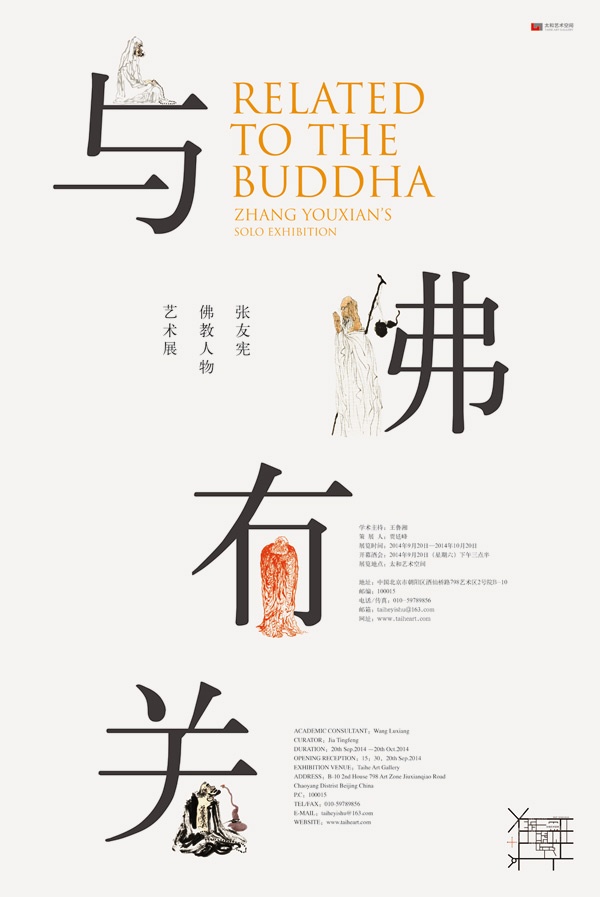 太和艺术空间
TAIHE ART GALLERY
与
RELATED
TO THE
BUDDHA
ZHANG YOUXIAN'S
SOLO EXHIBITION
张友宪
佛教人物
艺术展
佛
有
学术主持：王鲁湘
策 展 人：贾廷峰
展览时间：2014年9月20日—2014年10月20日
开幕酒会：2014年9月20日（星期六）下午三点半
展览地点：太和艺术空间
地址：中国北京市朝阳区酒仙桥路798艺术区2号院B-10
邮编：100015
电话/传真：010-59789856
邮箱：taiheyishu@163.com
网址：www.taiheart.com
关
ACADEMIC CONSULTANT：Wang Luxiang
CURATOR：Jia Tingfeng
DURATION：20th Sep.2014 —20th Oct.2014
OPENING RECEPTION：15：30，20th Sep.2014
EXHIBITION VENUE：Taihe Art Gallery
ADDRESS：B-10 2nd House 798 Art Zone Jiuxianqiao Road
Chaoyang Distreist Beijing China
P.C，100015
TEL/FAX：010-59789856
E-MAIL：taiheyishu@163.com
WEBSITE：www.taiheart.com